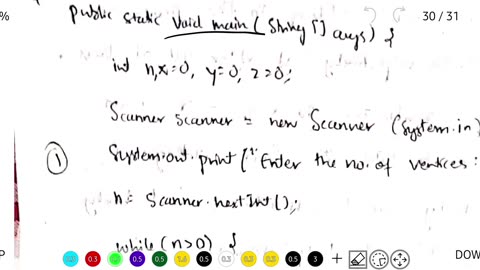 %
30 / 31
public static void main ( String [] args) {
int n, x=0, y=0, z=0;
Scanner scanner = new Scanner (System.in)
① System.out.print(" Enter the no. of vertices :
n = Scanner.nextInt();
while (n>0) {
P 0.3 0.5 0.5 1.0 0.5 0.3 0.3 0.3 0.5 3 + AD